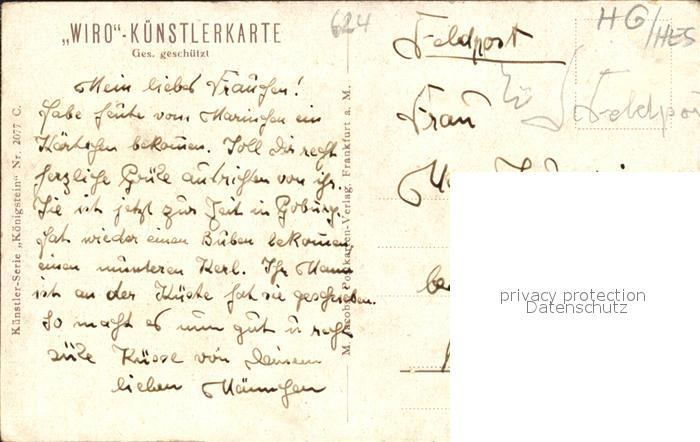 „WIRO“-KÜNSTLERKARTE
Ges. geschützt
624
Mein liebes Frauchen!
Habe heute vom Mariechen ein
Kärtchen bekommen. Soll Dir recht
herzliche Grüße ausrichten von ihr.
Sie ist jetzt zur Zeit in Coburg.
Hat wieder einen Buben bekommen,
einen munteren Kerl. Ihr Mann
ist an der Küste hat sie geschrieben.
So macht es nun gut u recht
süße Küsse von Deinem
lieben Männchen
Künstler-Serie „Königstein“ Nr. 2077 C.
M. Jacobs, Postkarten-Verlag, Frankfurt a. M.
Feldpost
Frau
HG/HES
Feldpos
privacy protection
Datenschutz